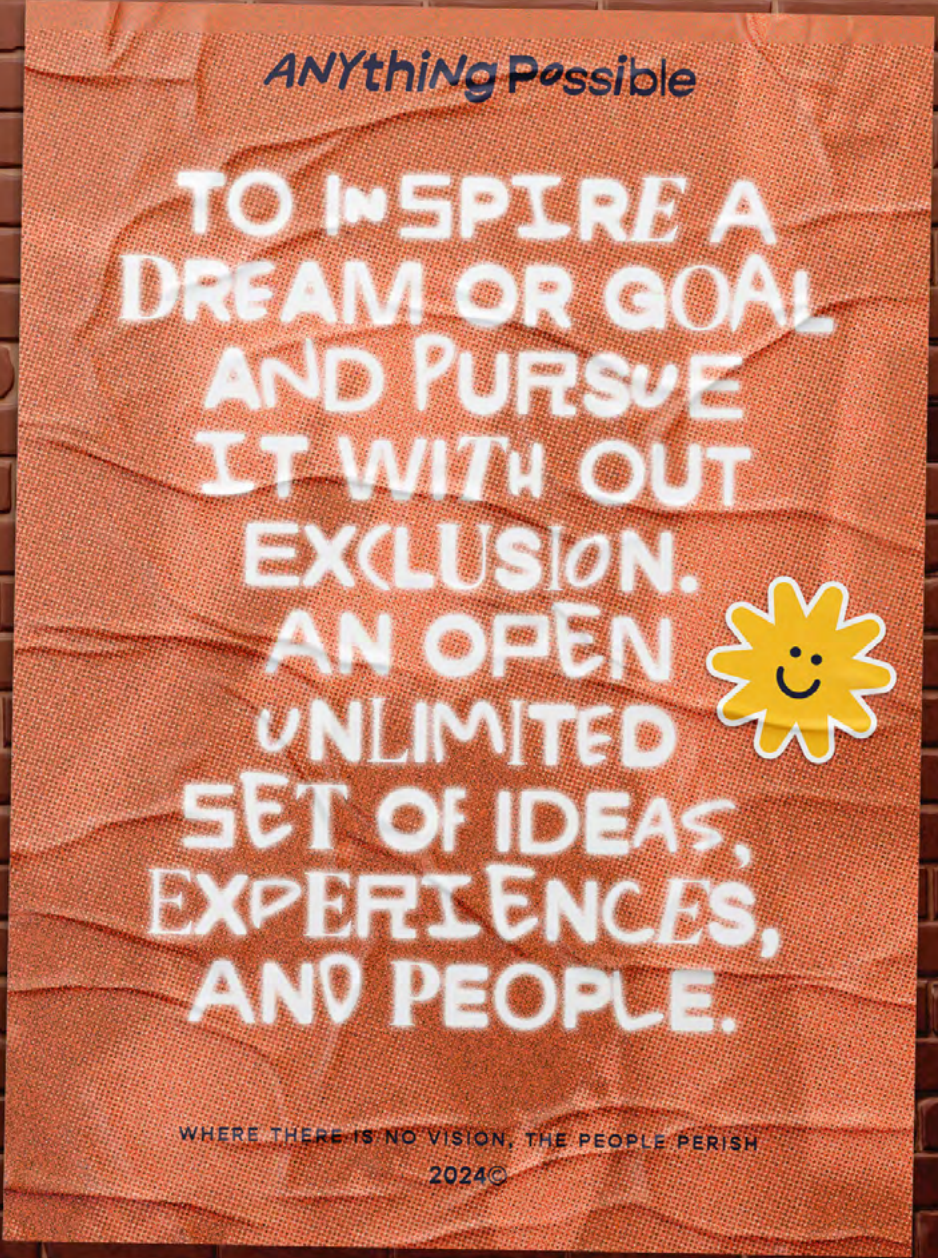 ANYthiNg Possible
TO INSPIRE A
DREAM OR GOAL
AND PURSUE
IT WITH OUT
EXCLUSION.
AN OPEN
UNLIMITED
SET OF IDEAS,
EXPERIENCES,
AND PEOPLE.
WHERE THERE IS NO VISION, THE PEOPLE PERISH
2024©